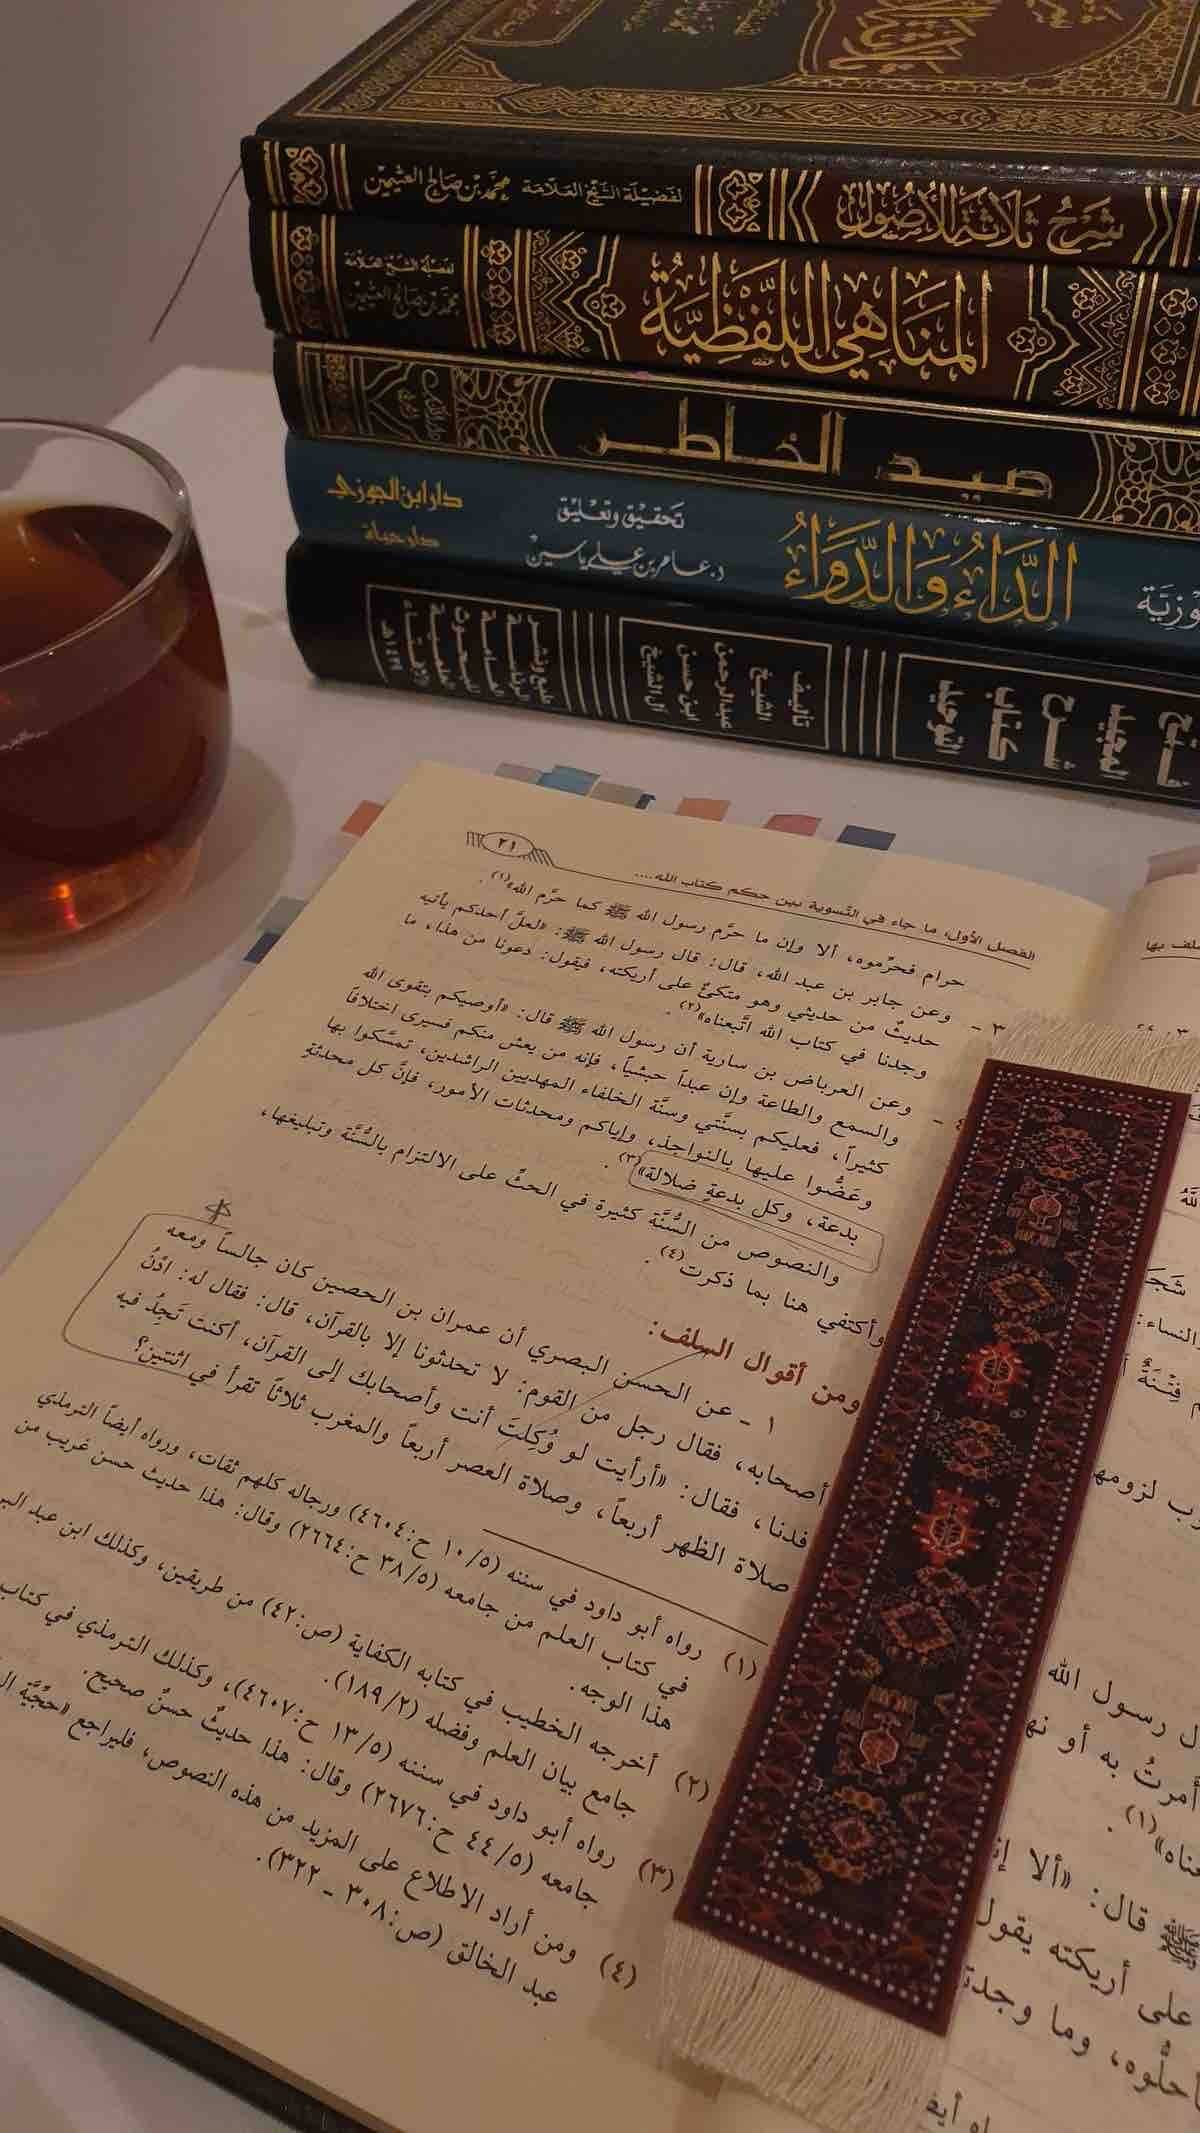 شَرْحُ ثَلَاثَةِ الأُصُول
لفَضيْلَة الشَّيْخ العَلّامَة محمَّد بْن صَالح العثيمين
المنَاهي اللَّفْظِيَّة
لفضيلة الشيخ العلامة
محمد بن صالح العثيمين
صيد الخاطر
وزيَّة
الدَّاءُ وَالدَّوَاءُ
تَحقيْق وتعْليْق
د. عَامر بن علي ياسين
دار ابن الجوزي
فتح
المجيد
شرح
كتاب
التوحيد
تأليف
الشيخ
عبدالرحمن
ابن حسن
آل الشيخ
طبع ونشر
٢١
الفصل الأول، ما جاء في التَّسوية بين حكم كتاب الله....
حرام فحرِّموه، ألا وإن ما حرَّم رسول الله ﷺ كما حرَّم الله»(١).
٣ - وعن جابر بن عبد الله، قال: قال رسول الله ﷺ: «لعلَّ أحدكم يأتيه
حديثٌ من حديثي وهو متكئٌ على أريكته، فيقول: دعونا من هذا، ما
وجدنا في كتاب الله اتَّبعناه»(٢).
٤ - وعن العرباض بن سارية أن رسول الله ﷺ قال: «أوصيكم بتقوى الله
والسمع والطاعة وإن عبداً حبشياً، فإنه من يعش منكم فسيرى اختلافاً
كثيراً، فعليكم بسنَّتي وسنَّة الخلفاء المهديين الراشدين، تمسَّكوا بها
وعَضُّوا عليها بالنواجذ، وإياكم ومحدثات الأمور، فإنَّ كل محدثةٍ
بدعة، وكل بدعةٍ ضلالة»(٣).
والنصوص من السُّنَّة كثيرة في الحثِّ على الالتزام بالسُّنَّة وتبليغها،
وأكتفي هنا بما ذكرت(٤).
ومن أقوال السلف:
١ - عن الحسن البصري أن عمران بن الحصين كان جالساً ومعه
أصحابه، فقال رجل من القوم: لا تحدثونا إلا بالقرآن، قال: فقال له: ادْنُ
فدنا، فقال: «أرأيت لو وُكِلتَ أنت وأصحابك إلى القرآن، أكنت تَجِدُ فيه
صلاة الظهر أربعاً، وصلاة العصر أربعاً والمغرب ثلاثاً تقرأ في اثنتين؟
(١) رواه أبو داود في سننه (١٠/٥ ح:٤٦٠٤) ورجاله كلهم ثقات، ورواه أيضاً الترمذي
في كتاب العلم من جامعه (٣٨/٥ ح:٢٦٦٤) وقال: هذا حديث حسن غريب من
هذا الوجه.
(٢) أخرجه الخطيب في كتابه الكفاية (ص:٤٢) من طريقين، وكذلك ابن عبد البر
جامع بيان العلم وفضله (١٨٩/٢).
(٣) رواه أبو داود في سننه (١٣/٥ ح:٤٦٠٧)، وكذلك الترمذي في كتاب
جامعه (٤٤/٥ ح:٢٦٧٦) وقال: هذا حديثٌ حسنٌ صحيح.
(٤) ومن أراد الاطلاع على المزيد من هذه النصوص، فليراجع «حُجِّيَّة
عبد الخالق (ص:٣٠٨ - ٣٢٢).
النساء:
فِتْنَةٌ
رسول الله
أمرتُ به أو
(١).
ﷺ قال: «ألا
على أريكته يقول
، وما